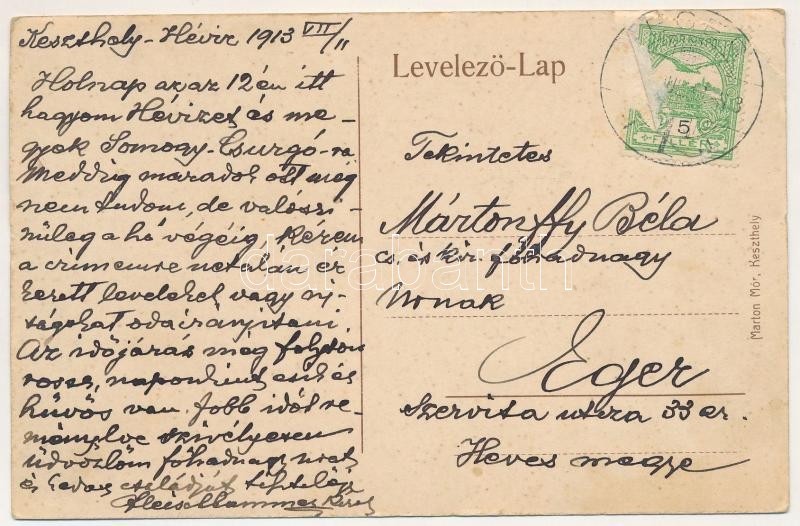 Keszthely-Hévíz 1913 VII/11
Holnap azaz 12én itt
hagyom Hévizet és me-
gyek Somogy-Csurgó-ra
Meddig maradok ott még
nem tudom, de valószi-
nüleg a hó végéig. Kérem
a cimemre netalán ér
kezett leveleket vagy uj-
ságokat odairányitani.
Az időjárás még folyton
rossz, naponként esik és
hüvös van. Jobb időt re-
mélve szivélyesen
üdvözlöm főhadnagy urat
és családját tisztelője
Levelező-Lap
Tekintetes
Mártonffy Béla
cs. és kir. főhadnagy
Urnak
Eger
Szervita utcza 33 sz.
Heves megye
Marton Mór, Keszthely
FILLÉR
5
darabanth